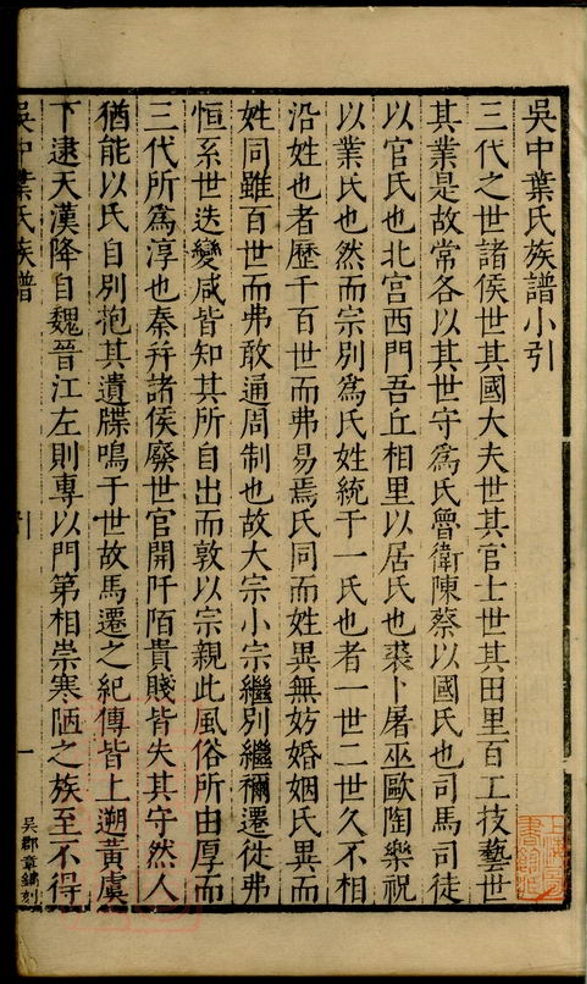 吳中葉氏族譜小引
三代之世諸侯世其國大夫世其官士世其田里百工技藝世
其業是故常各以其世守爲氏魯衛陳蔡以國氏也司馬司徒
以官氏也北宮西門吾丘相里以居氏也裘卜屠巫歐陶樂祝
以業氏也然而宗別爲氏姓統于一氏也者一世二世久不相
沿姓也者歷千百世而弗易焉氏同而姓異無妨婚姻氏異而
姓同雖百世而弗敢通周制也故大宗小宗繼別繼禰遷徙弗
恒系世迭變咸皆知其所自出而敦以宗親此風俗所由厚而
三代所爲淳也秦幷諸侯廢世官開阡陌貴賤皆失其守然人
猶能以氏自別抱其遺牒鳴于世故馬遷之紀傳皆上遡黃虞
下逮天漢降自魏晉江左則專以門第相崇寒陋之族至不得
吳中葉氏族譜
引
一
吳郡章鏞刻